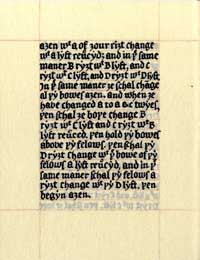 azen wᵗ a of zour ryzt change
wᵗ a lyft reuc̄yd; and in þᵉ same
maner B ryzt wᵗ B lyft, and C
ryzt wᵗ C lyft, and D ryzt wᵗ D lyft.
In þᵉ same maner ze schal chāge
al þy bowes azen. and when ze
have changed a to a &c twyes,
þen schal ze hope change B
ryzt wᵗ C lyft and C ryzt wᵗ B
lyft reuc̄ed, þen hold þy bowes
above þy felows. þen schal þy
D ryzt change wᵗ þy bowe of þy
felows a lyft reuc̄yd, and in þᵉ
same maner schal þy felows a
ryzt change wᵗ þy D lyft, þen
begyn azen.